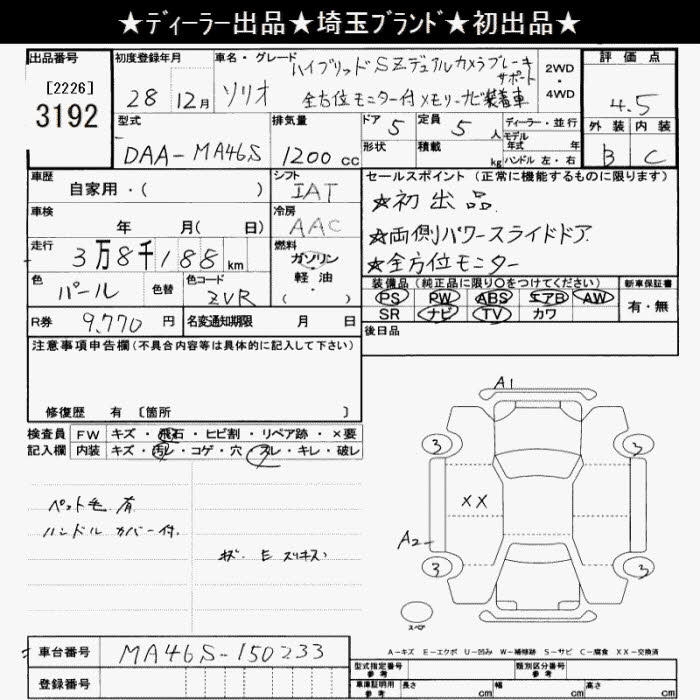 ★ディーラー出品★埼玉ブランド★初出品★
出品番号 初度登録年月 車名・グレード 評価点
[2226] 3192
28 12月
ソリオ ハイブリッドSZデュアルカメラブレーキサポート
全方位モニター付メモリーナビ装着車
2WD・4WD
4.5
外装 内装
B C
型式 排気量 ドア 5 定員 5人 ディーラー・並行
モデル年式 年
DAA-MA46S 1200cc 形状 積載 kg ハンドル 左・右
車歴 自家用・( ) シフト IAT
セールスポイント (正常に機能するものに限ります)
★初出品
★両側パワースライドドア
★全方位モニター
車検 年 月( 日) 冷房 AAC
走行 3万8千188km 燃料 ガソリン・軽油・( )
色 パール 色替 色コード ZVR
装備品 (純正品に限り○をつけてください) 新車保証書
PS PW ABS エアB AW 有・無
SR ナビ TV カワ
R券 9,770円 名変通知期限 月 日
後日品
注意事項申告欄(不具合内容等は具体的に記入して下さい)
修復歴 有 〔箇所 〕
検査員 FW キズ・飛石・ヒビ割・リペア跡・×要
記入欄 内装 キズ・汚レ・コゲ・穴・スレ・キレ・破レ
ペット毛 有
ハンドル カバー付.
A1
3 3
XX
A2
3 3
スペア
A-キズ E-エクボ U-凹み W-補修跡 S-サビ C-腐食 XX-交換済
車台番号 MA46S-150233
登録番号
型式指定番号 参考 類別区分番号 参考
車庫証明用 参考 長さ cm 幅 cm 高さ cm